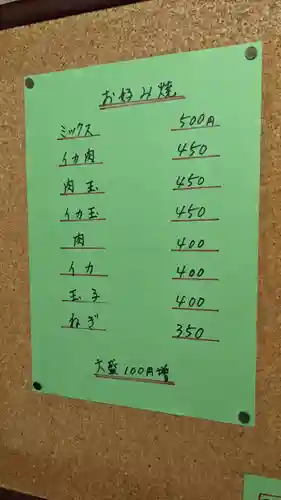 お好み焼
ミックス 500円
イカ肉 450
肉玉 450
イカ玉 450
肉 400
イカ 400
玉子 400
ねぎ 350
大盛100円増